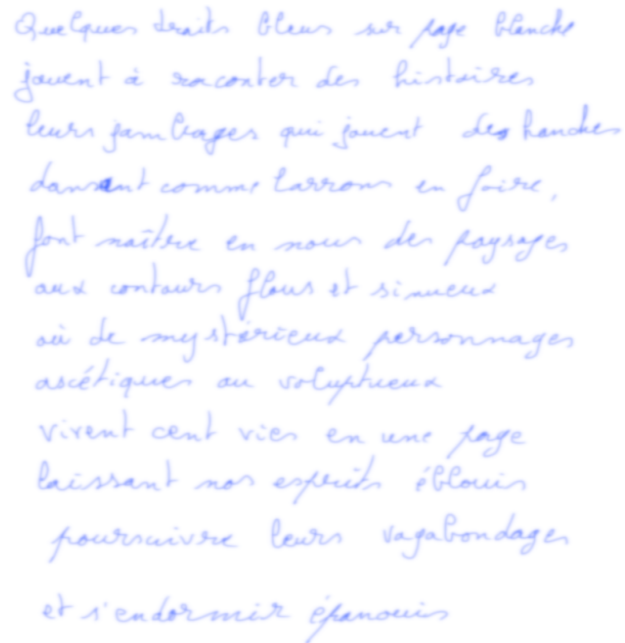 Quelques traits bleus sur page blanche
jouent à raconter des histoires
leurs jambages qui jouent des hanches
dansent comme larrons en foire,
font naître en nous des paysages
aux contours flous et sinueux
où de mystérieux personnages
ascétiques ou voluptueux
vivent cent vies en une page
laissant nos esprits éblouis
poursuivre leurs vagabondages
et s'endormir épanouis